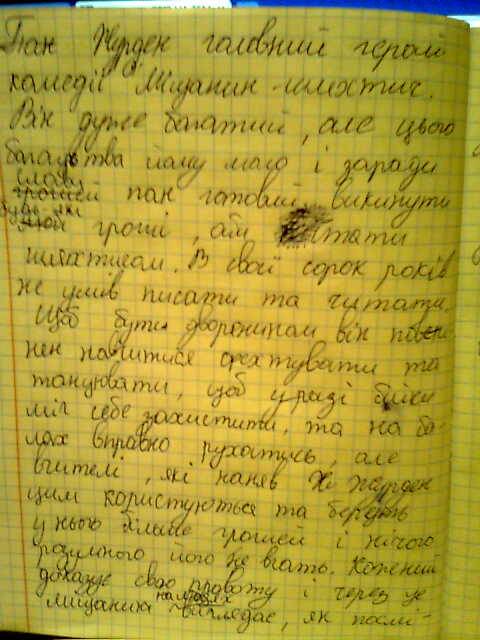 Пан Журден головний герой
комедії "Міщанин-шляхтич.
Він дуже багатий, але цього
багатства йому мало і заради
слави
грошей пан готовий викинути
будь які
гроші, аби стати
шляхтичем. В свої сорок років
не умів писати та читати.
Щоб бути дворянином він пови-
нен навчитися фехтувати та
танцювати, щоб у разі бійки
міг себе захистити, та на ба-
лах вправно рухатись, але
вчителі, які наняв Журден
цим користуються та беруть
у нього більше грошей і нічого
розумного його не вчать. Кожений
доказує свою правоту і через це
на людях
міщанина виглядає, як послі-